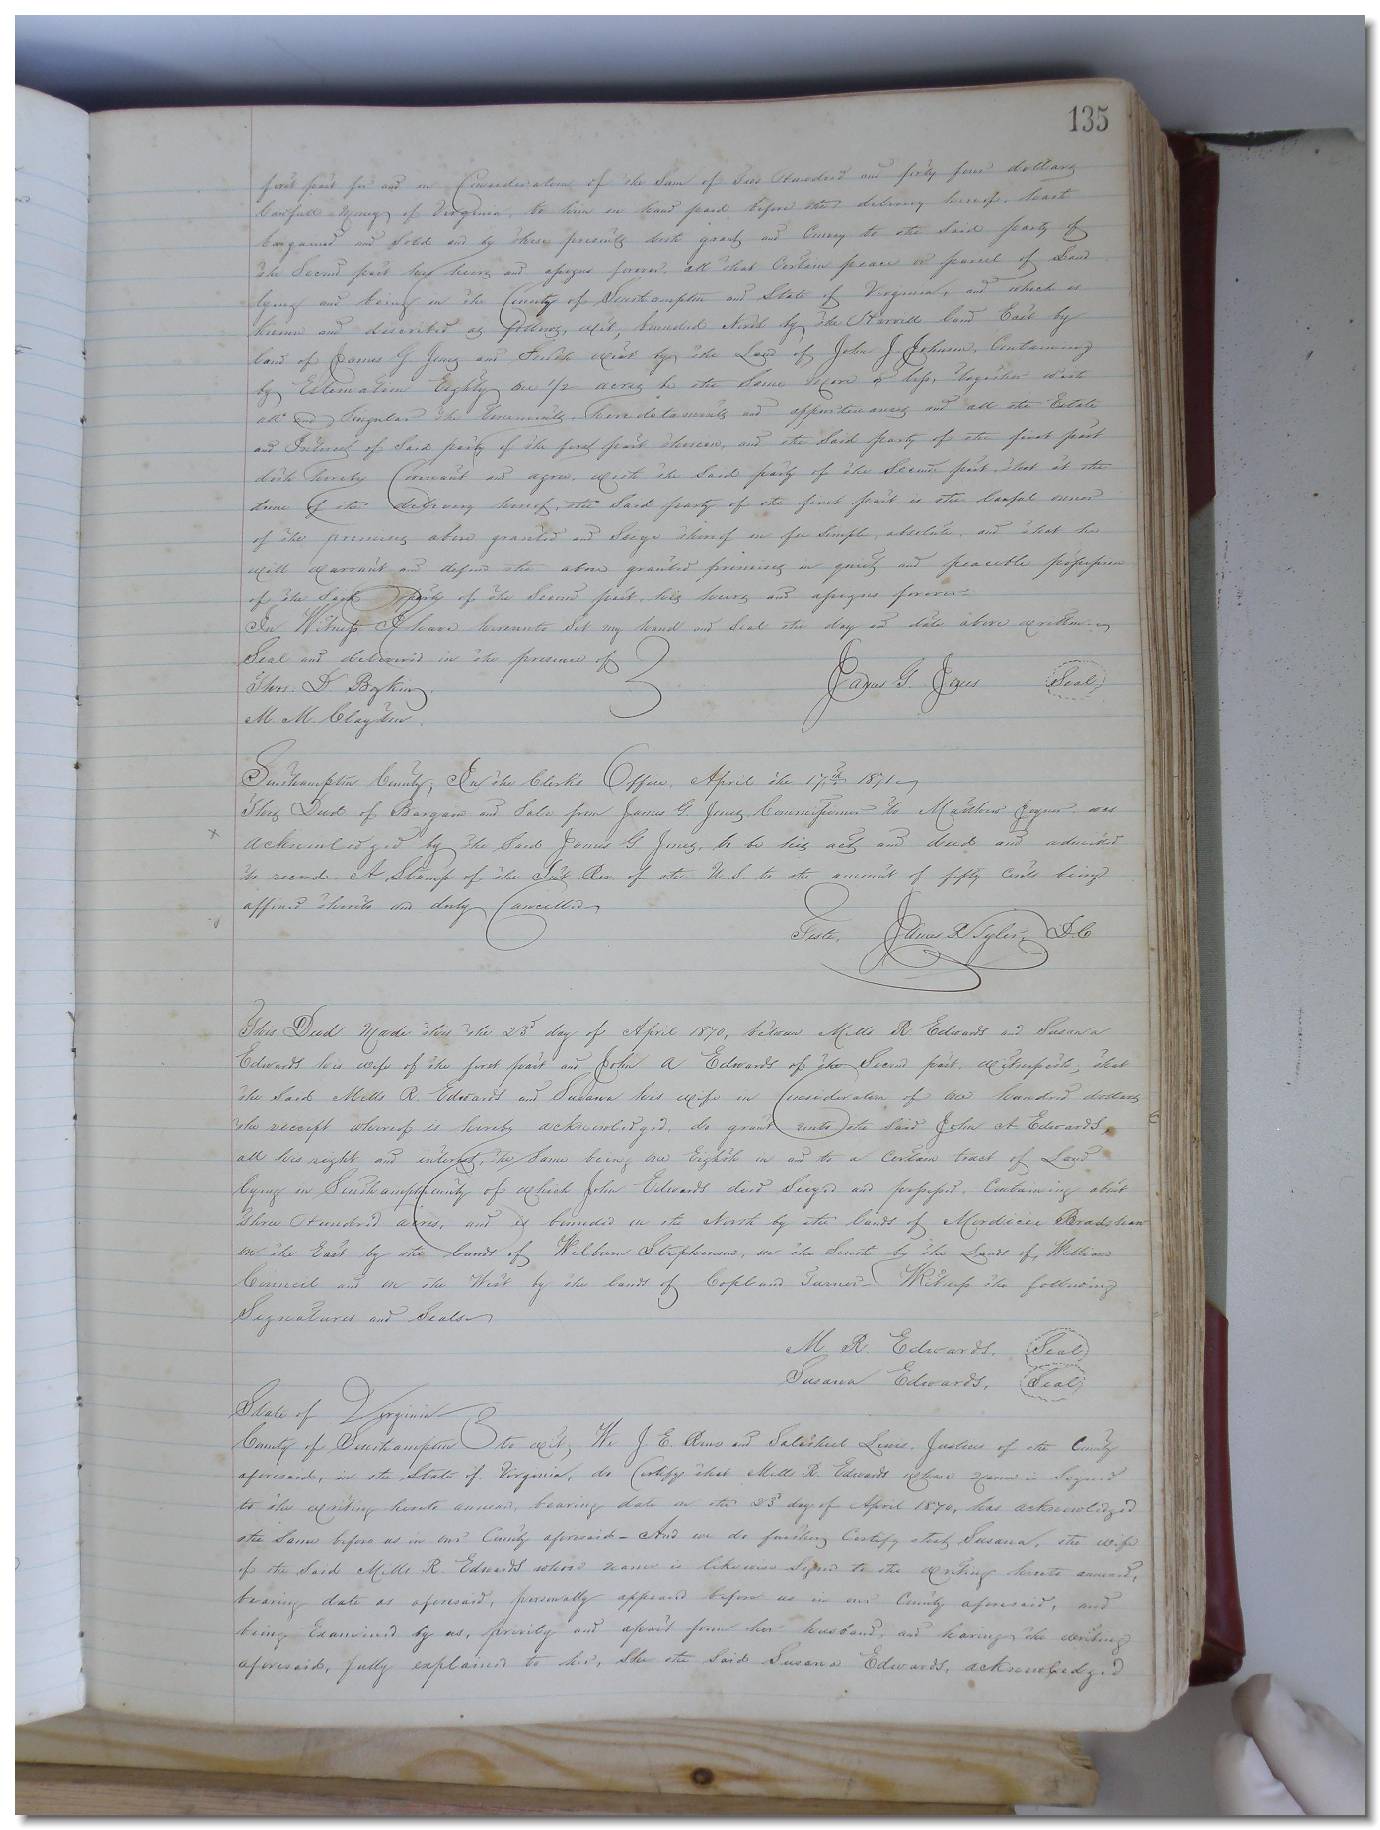 135
first part for and in Consideration of the Sum of Two Hundred and forty four dollars
lawfull money of Virginia, to him in hand paid before the delivery hereof, hath
bargained and Sold and by these presents doth grant and Convey to the Said party of
the Second part his heirs and assigns forever, all that Certain peace or parcel of Land
lying and being in the County of Southampton and State of Virginia, and which is
known and described as follows, wit, bounded North by the land East by
land of James G Jones and South West by the Land of John J Johnson, Containing
by Estimation Eighty one 1/2 acres be the Same More or less, together with
all and Singular the tenements, hereditaments and appurtenances and all the Estate
and Interest of Said party of the first part therein, and the Said party of the first part
doth hereby Covenant and agree with the Said party of the Second part, that at the
time of the delivery hereof, the Said party of the first part is the lawful owner
of the premises above granted and Seize thereof in fee Simple absolute, and that he
will warrant and defend the above granted premises in quiet and peacible possession
of the Said party of the Second part, his heirs and assigns forever
In Witness I have hereunto Set my hand and Seal the day and date above written
Seal and delivered in the presence of
Thos. D Boykin. James G. Jones Seal
M. M. Clayton.
Southampton County, In the Clerk's Office, April the 17th 1871
This Deed of Bargain and Sale from James G. Jones Commissioner to Matthew Joyner was
x
acknowledged by the Said James G Jones, to be his act and deed and admitted
to record. A Stamp of the Int Rev of the U.S. to the amount of fifty Cents being
affixed thereto and duly Cancelled
Teste, James R Tyler, D.C
This Deed Made this the 23d day of April 1870, between Mills R Edwards and Susana
Edwards his wife of the first part and John A Edwards of the Second part, witnesseth, that
the Said Mills R. Edwards and Susana his wife in Consideration of one hundred dollars
the receipt whereof is hereby acknowledged, do grant unto the Said John A Edwards,
all his right and interest, the Same being one Eighth in and to a Certain tract of Land
lying in Southampton County of which John Edwards died Seized and possessed, Containing about
Three Hundred acres, and is bounded on the North by the lands of Mordicie Bradshaw
on the East by the lands of Welborn Stephenson, on the South by the Lands of William
Council and on the West by the lands of Copeland Turner Witness the following
Signatures and Seals
M. R. Edwards. Seal
Susana Edwards, Seal
State of Virginia
County of Southampton to wit, We J. E. and Lewis, Justices of the County
aforesaid, in the State of Virginia, do Certify that Mills R. Edwards whose name is Signed
to the writing hereto annexed, bearing date on the 23d day of April 1870, has acknowledged
the Same before us in our County aforesaid - And we do further Certify that Susana, the wife
of the Said Mills R. Edwards whose name is likewise Signed to the writing hereto annexed,
bearing date as aforesaid, personally appeared before us in our County aforesaid, and
being Examined by us, privily and apart from her husband, and having the writing
aforesaid, fully explained to her, She the Said Susana Edwards, acknowledged